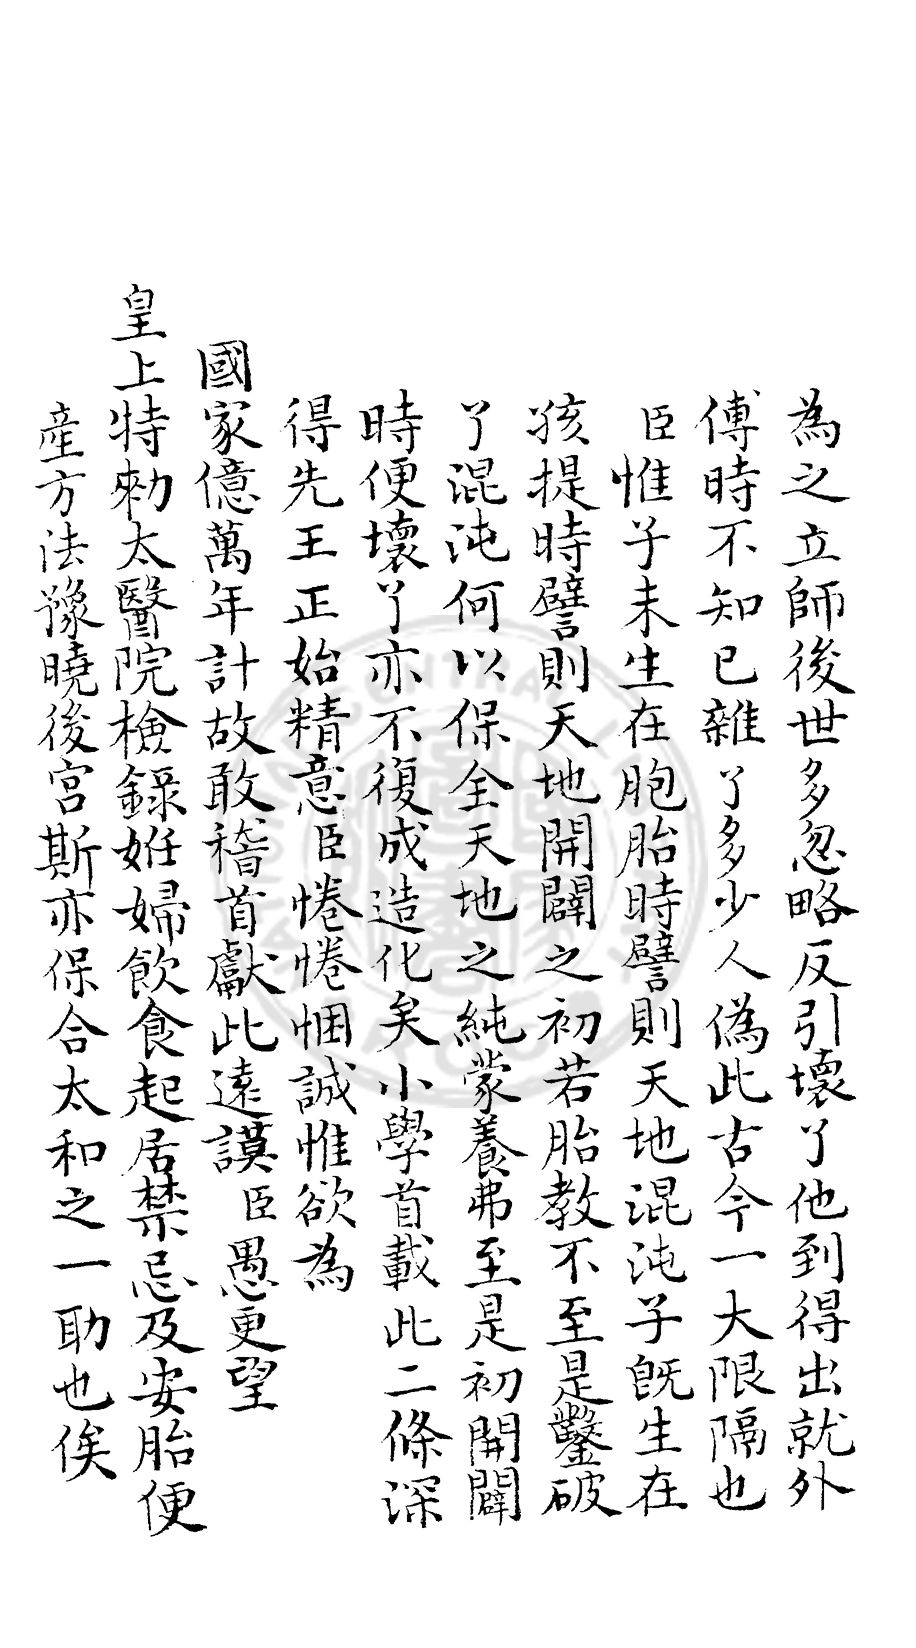 為之立師後世多忽略反引壞了他到得出就外
傅時不知已雜了多少人偽此古今一大限隔也
臣惟子未生在胞胎時譬則天地混沌子旣生在
孩提時譬則天地開闢之初若胎教不至是鑿破
了混沌何以保全天地之純蒙養弗至是初開闢
時便壞了亦不復成造化矣小學首載此二條深
得先王正始精意臣惓惓悃誠惟欲為
國家億萬年計故敢稽首獻此遠謨臣愚更望
皇上特勑太醫院檢錄姙婦飲食起居禁忌及安胎便
產方法豫曉後宮斯亦保合太和之一助也俟